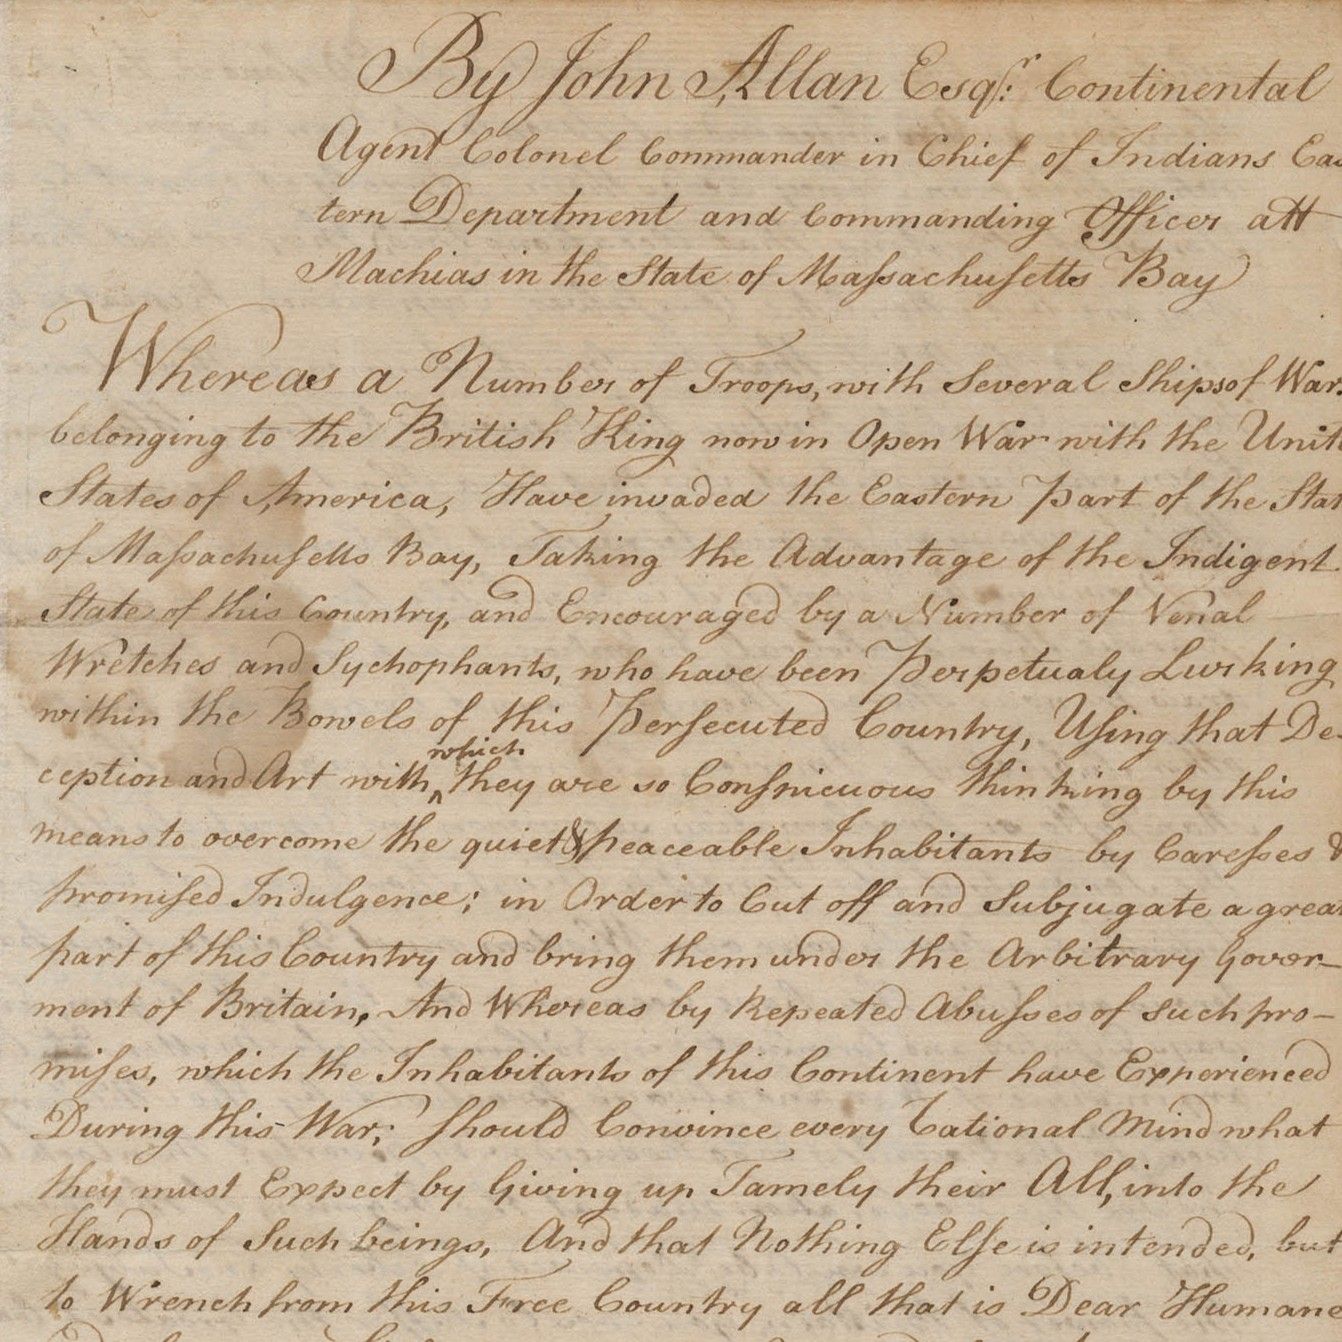 By John Allan Esqr: Continental
Agent Colonel Commander in Chief of Indians Eas
tern Department and Commanding Officer att
Machias in the State of Massachusetts Bay
Whereas a Number of Troops, with Several Ships of War
belonging to the British King now in Open War with the Unit
States of America, Have invaded the Eastern Part of the Stat
of Massachusetts Bay, Taking the Advantage of the Indigent
State of this Country, and Encouraged by a Number of Venal
Wretches and Sychophants, who have been Perpetualy Lurking
within the Bowels of this Persecuted Country, Using that De-
ception and Art with which they are so Conspicuous thinking by this
means to overcome the quiet & peaceable Inhabitants by Caresses &
promised Indulgence; in Order to Cut off and Subjugate a grea
part of this Country and bring them under the Arbitrary Gover-
ment of Britain, And Whereas by Repeated Abusses of such pro-
mises, which the Inhabitants of this Continent have Experienced
During this War; Should Convince every Rational Mind what
they must Expect by Giving up Tamely their All, into the
Hands of Such beings, And that Nothing Else is intended, but
to Wrench from this Free Country all that is Dear Humane